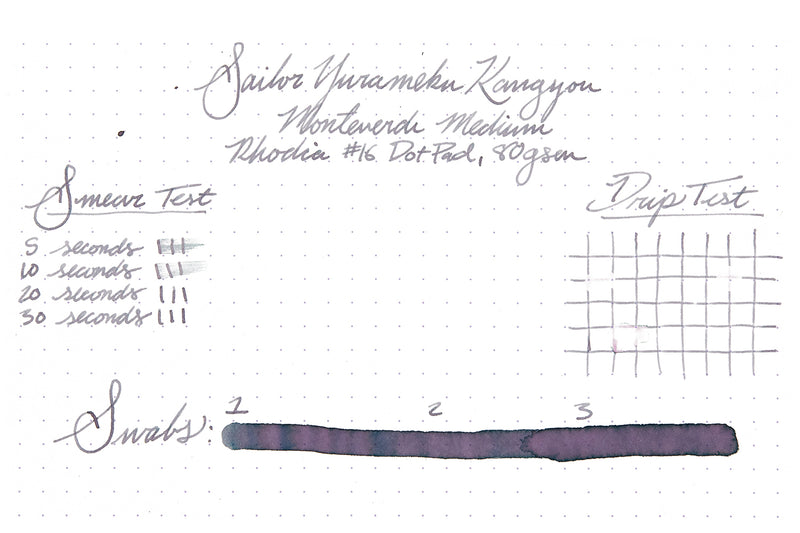 Sailor Yurameku Kangyou
Monteverde Medium
Rhodia #16 Dot Pad, 80gsm
Smear Test
Drip Test
5 seconds
10 seconds
20 seconds
30 seconds
Swabs:
1 2 3